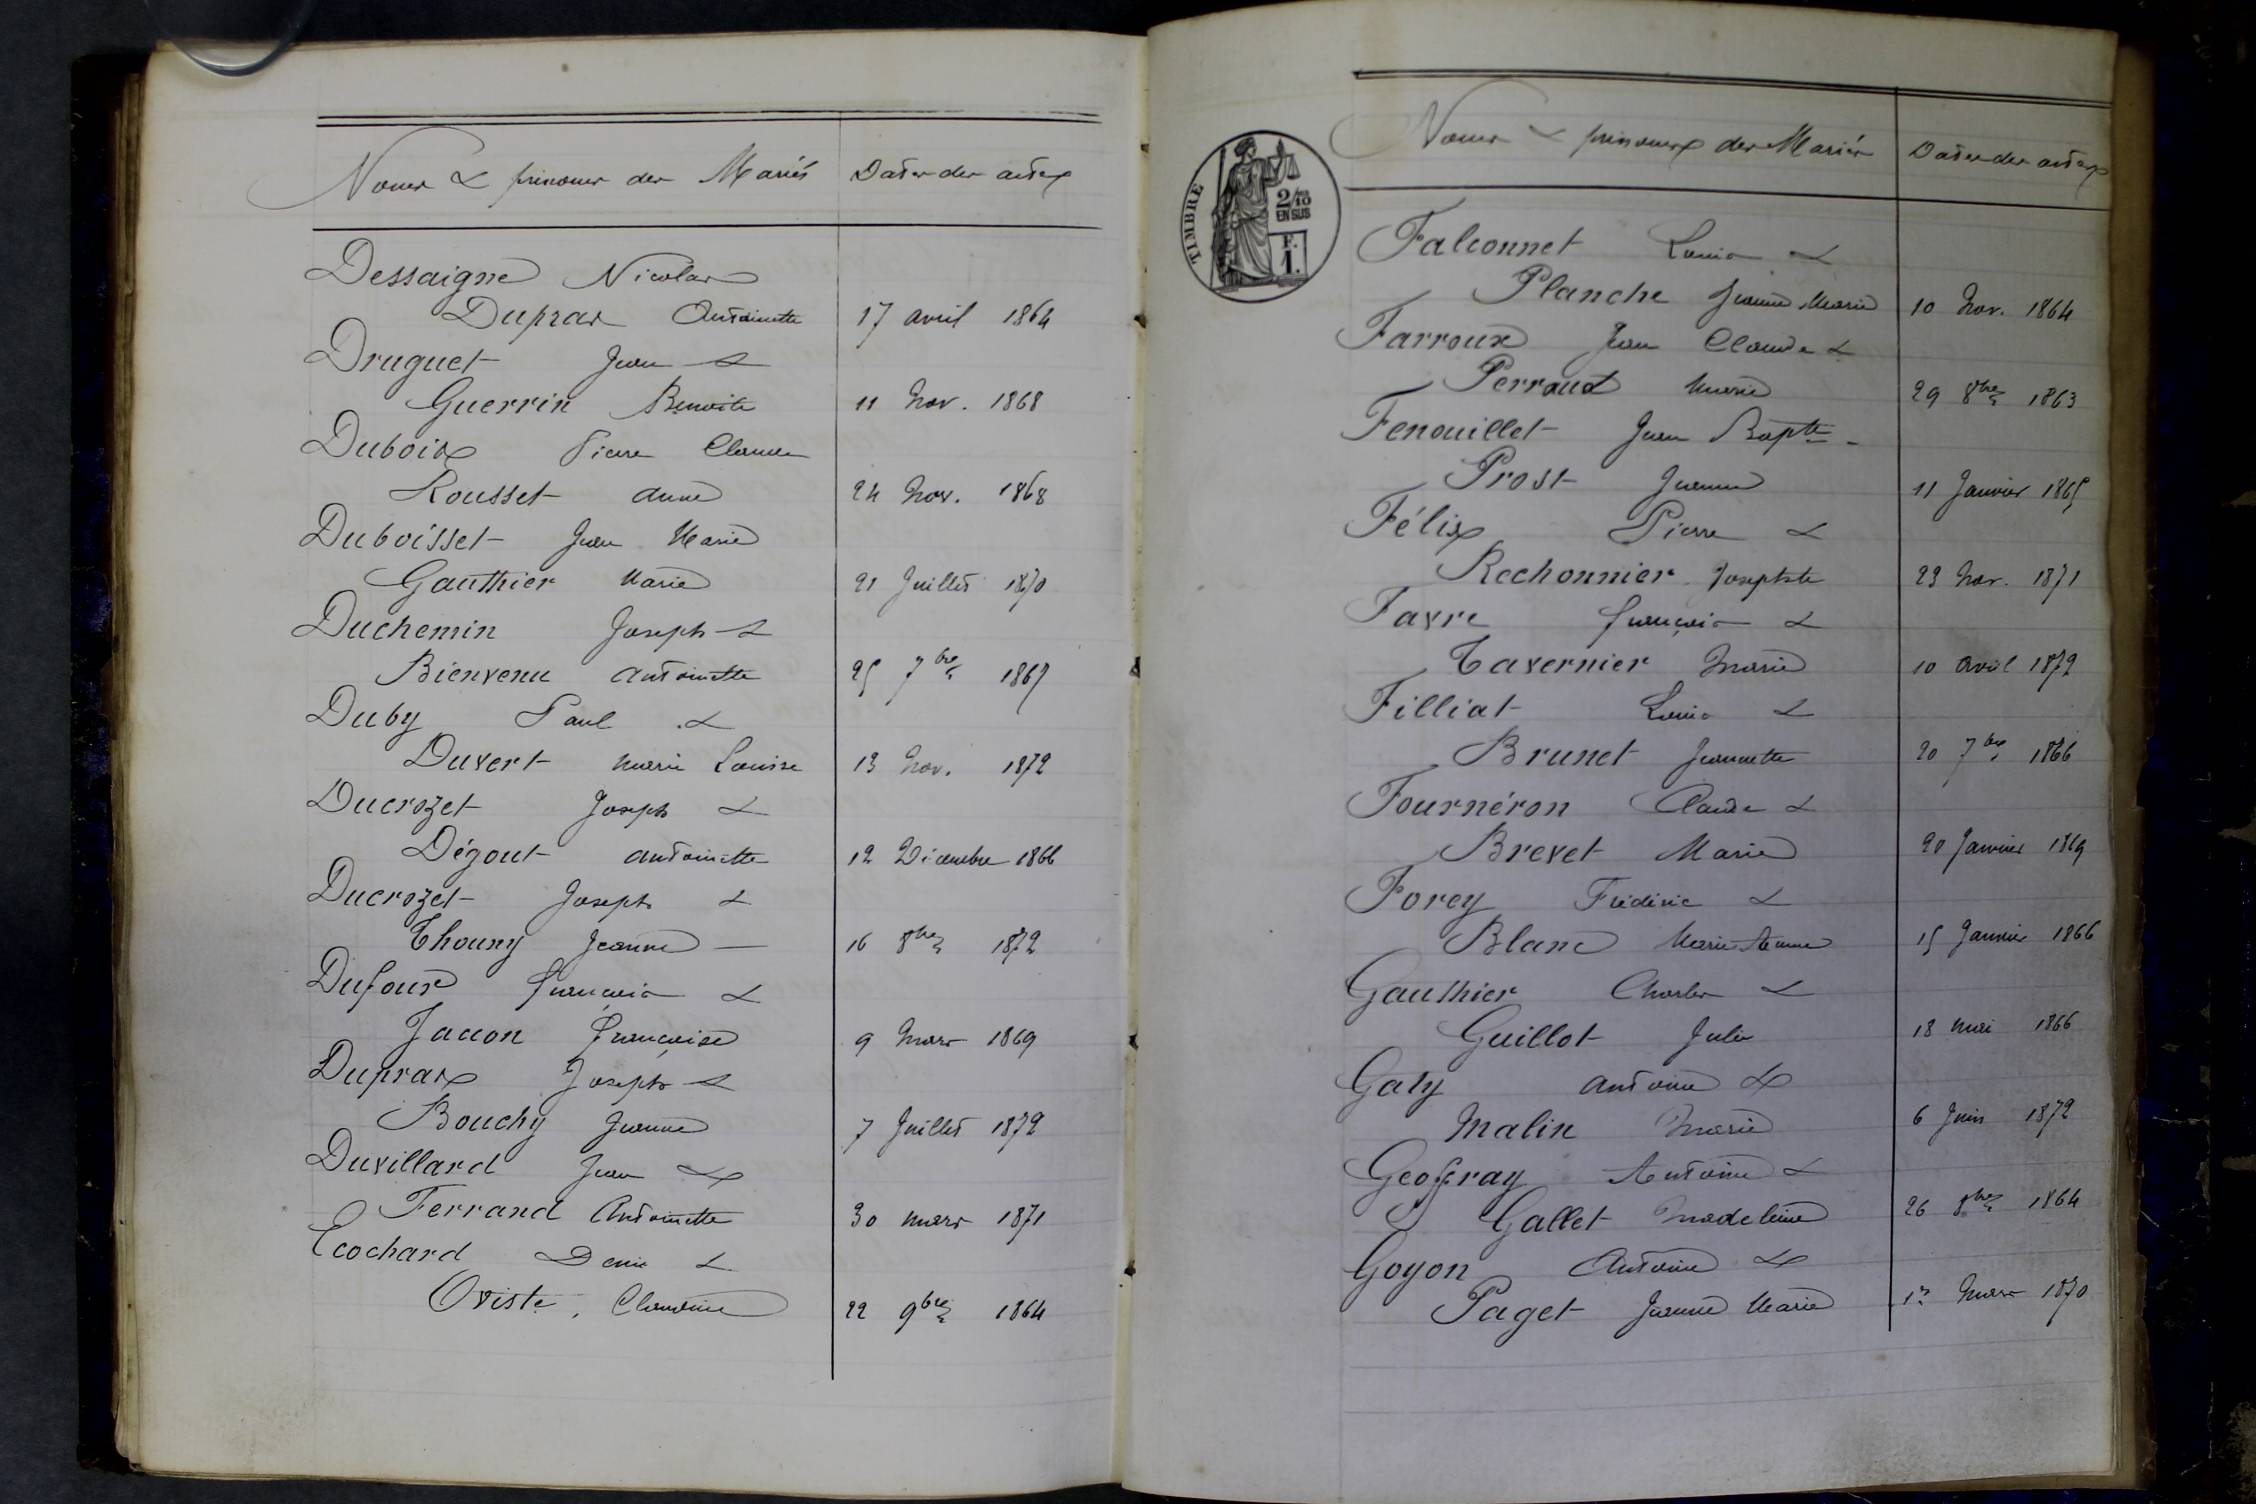 Noms & prénoms des Mariés Dates des actes
Dessaigne Nicolas
Dupras Antoinette 17 avril 1864
Druguet Jean &
Guerrin Benoite 11 Nov. 1868
Dubois Pierre Claude
Rousset Anne 24 Nov. 1868
Duboisset Jean Marie
Gauthier Marie 21 Juillet 1870
Duchemin Joseph &
Bienvenu Antoinette 25 7bre
Duby Paul &
Duvert Marie Louise 13 Nov. 1872
Ducrozet Joseph &
Dégout Antoinette 12 Décembre 1866
Ducrozet Joseph &
Thouny Jeanne 16 8bre 1872
Dufour François &
Jacon Françoise 9 Mars 1869
Dupras Joseph &
Bouchy Jeanne 7 Juillet 1872
Duvillard Jean &
Ferrand Antoinette 30 mars 1871
Ecochard Denis &
Oviste, Claudine 22 9bre 1864
TIMBRE
2/10
EN SUS
F.
1.
Noms & prénoms des Mariés Dates des actes
Falconnet Louis &
Planche Jeanne Marie 10 Nov. 1864
Farroux Jean Claude &
Perraud Marie 29 8bre 1863
Fenouillet Jean Bapte
Prost Jeanne 11 Janvier 1865
Félix Pierre &
Rechonnier Josephte 23 Nov. 1871
Favre François &
Tavernier Marie 10 avril 1872
Filliat Louis &
Brunet Jeannette 20 7bre 1866
Fournéron Claude &
Brevet Marie 20 Janvier 1869
Forey Frédéric &
Blanc Marie Anne 15 Janvier 1866
Gauthier Charles &
Guillot Julie 18 mai 1866
Gaty Antoine &
Malin Marie 6 Juin 1872
Geoffray Antoine &
Gallet Madeleine 26 8bre 1864
Goyon Antoine &
Paget Jeanne Marie 1er Mars 1870